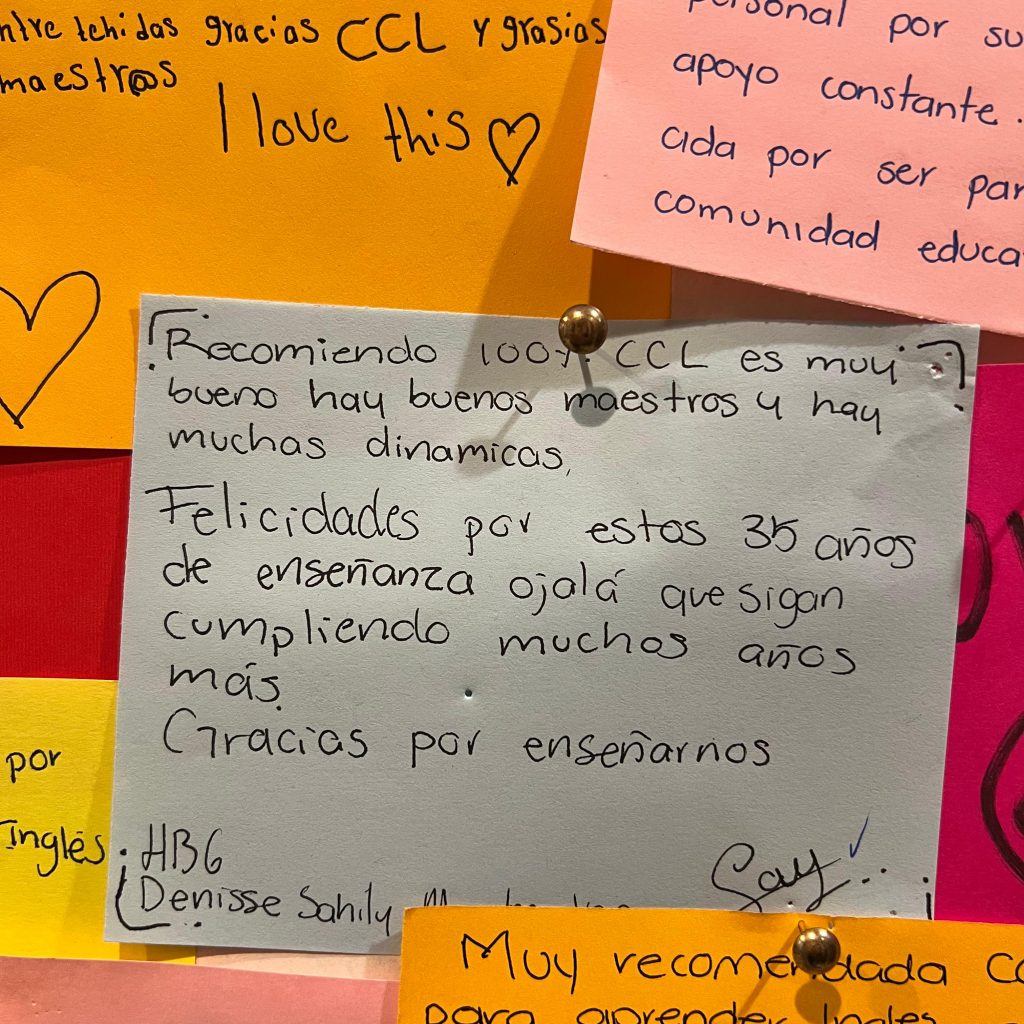 entretehidas gracias CCL y grasias
maestr@s
I love this
personal por su
apoyo constante.
cida por ser par
comunidad educa
Recomiendo 100% CCL es muy
bueno hay buenos maestros y hay
muchas dinamicas,
Felicidades por estos 35 años
de enseñanza ojalá que sigan
cumpliendo muchos años
más.
Gracias por enseñarnos
HB6
Denisse Sahily
Say
por
Inglés.
Muy recomendada
para aprender Ingles